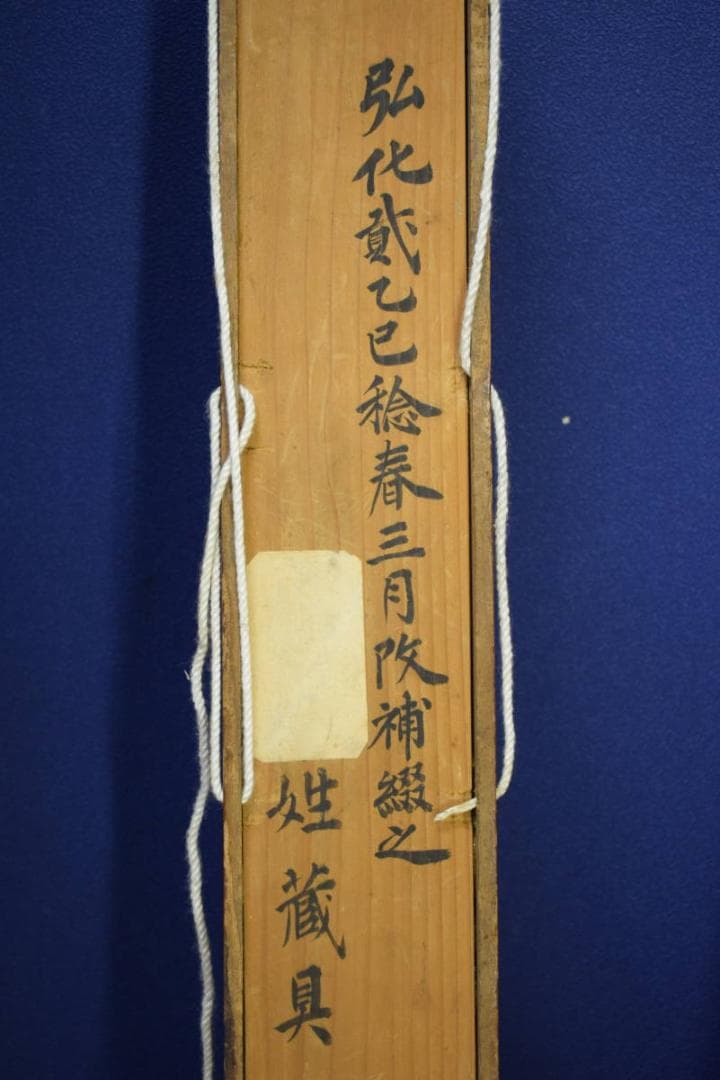 弘化貮乙巳稔春三月改補綴之
姓蔵具